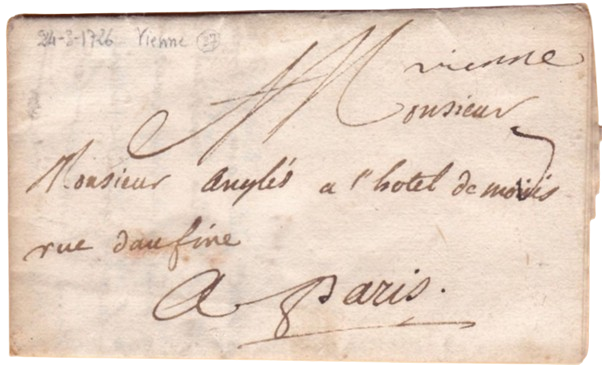 24-3-1726 Vienne 37
vienne
Monsieur
Monsieur anglés a l'hotel de
rue daufine
A paris.